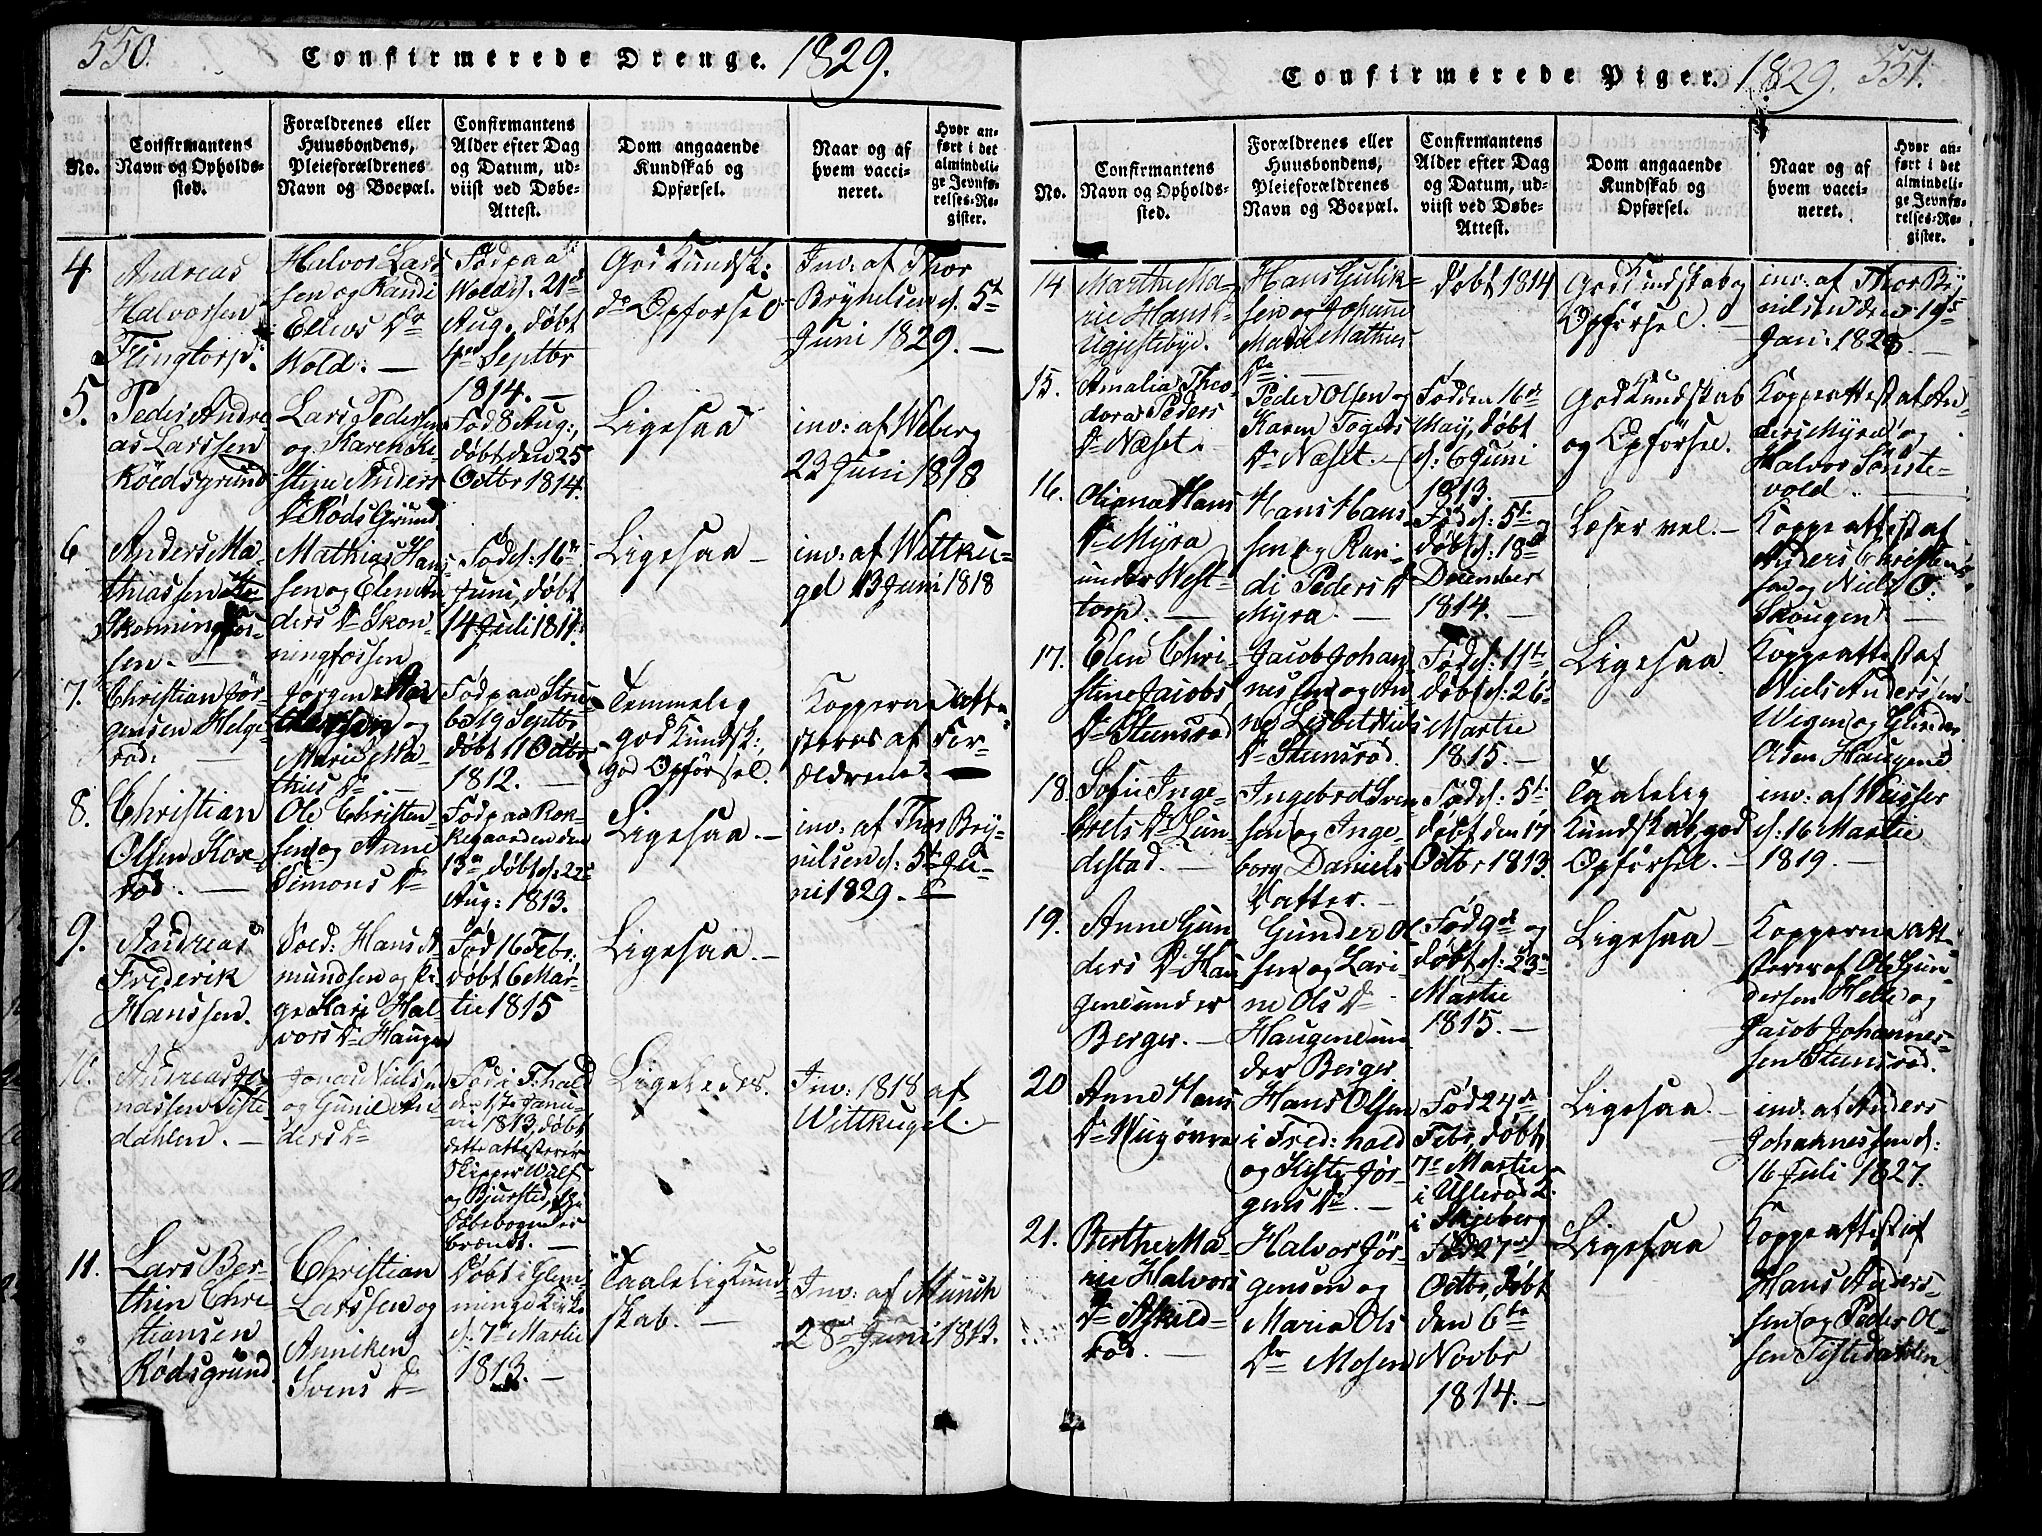 550.
Confirmerede Drenge. 1829.
No.
Confirmantens
Navn og Opholds-
sted.
Forældrenes eller
Huusbondens,
Pleieforældrenes
Navn og Boepæl.
Confirmantens
Alder efter Dag
og Datum, ud-
viist ved Døbe-
Attest.
Dom angaaende
Kundskab og
Opførsel.
Naar og af
hvem vacci-
neret.
Hvor an-
ført i det
almindeli-
ge Jevnfø-
relses-Re-
gister.
4
Andreas
Halvorsen
Flingtorp.
Halvor Lar-
sen og Randi
Ellevs Dr
Wold. —
Fød paa
Wold d. 21de
Aug. døbt
4de Septbr
1814. —
God Kundsk:
do Opførsel
Inv: af Thor
Brynelsen d. 5t
Juni 1829. —
5.
Peder Andre-
as Larssen
Röedsgrund
Lars Pedersen
og Karen Ki-
stine Anders
Dr Röds Grund
Fød 8 Aug:,
døbt den 25
Octbr 1814.
Ligesaa
inv: af Weberg
23 Juni 1818
6
Anders Ma-
thiassen
Skonningfos-
sen. —
Mathias Han-
sen og Elen An-
ders Dr Skon-
ningfossen
Fød d: 16n
Juni, døbt
14 Juli 1814.
Ligesaa —
inv: af Wittku-
gel 13 Juni 1818
7.
Christian Jör-
gensen Helge-
rød. —
Jörgen
og
Marie Ma-
thius Dr. —
Fød paa
19 Septbr
døbt 11 Octbr
1812. —
Temmelig
god Kundsk:,
god Opførsel.
Kopperne atte-
steres af For-
ældrene. —
8.
Christian
Olsen Kor-
rød. —
Ole Christen-
sen og Anne
Simons Dr
Fød paa Kor-
kegaarden den
13n, døbt d: 22n
Aug: 1813.
Ligesaa. —
inv: af Thor Bry-
nilsen d: 5t Ju-
ni 1829. —
9.
Andreas
Frederik
Hanssen.
Sold: Hans A-
mundsen og Pi-
ge Kari Hal-
vors Dr Haugen
Fød 16 Febr:,
døbt 6 Mar-
tii 1815
Ligesaa. —
10.
Andreas Jo-
nassen Tiste-
dahlen. —
Jonas Nielsen
og Gunil An-
ders Dr
Fød i F:hald
den 17n Janu-
ari 1813, døbt
dette attesterer
Skipper Wulf
og Bjursted,
Döbebogen er
brændt. —
Ligeledes.
Inv: 1818 af
Wittkugel.
11.
Lars Ber-
thin Chri-
stiansen
Rödsgrund.
Christian
Larssen og
Anniken
Svens Dr
Döbt i Glem-
minge Kirke
d. 7n Martii
1813. —
Taalelig Kund-
skab. —
Inv: af Münch
28 Juni 1813.
551.
Confirmerede Piger. 1829.
No.
Confirmantens
Navn og Opholds-
sted.
Forældrenes eller
Huusbondens,
Pleieforældrenes
Navn og Boepæl.
Confirmantens
Alder efter Dag
og Datum, ud-
viist ved Døbe-
Attest.
Dom angaaende
Kundskab og
Opførsel.
Naar og af
hvem vacci-
neret.
Hvor an-
ført i det
almindeli-
ge Jevnfø-
relses-Re-
gister.
14
Marthe Ma-
rie Hans Dr
Ugjestebye.
Hans Gulik-
sen og Johanne
Marie Mathius
Dr. —
døbt 1814
God Kundskab og
Opførsel. —
inv: af Thor Bry-
nilsen den 19de
Jan: 1828. —
15.
Amalia Theo-
dora Peders
Dr Næset. —
Peder Olsen og
Karen Tøgers
Dr Næset. —
Fød den 16de
May, døbt
d: 6 Juni
1813. —
God Kundskab
og Opførsel.
Koppeattest af An-
ders Myra og
Halvor Sonste-
vold
16.
Oliana Hans
Dr Myra
under West-
torp. —
Hans Hans-
sen og Ran-
di Peders Dr
Myra. —
Fød d: 5te og
døbt d: 18de
December
1814. —
Læser vel. —
Koppeattest af
Anders Christen-
sen og Niels O.
Skougen. —
17.
Elen Chri-
stine Jacobs
Dr Stumsrød
Jacob Johan-
nessen og An-
ne Lisbet Niels
Dr Stumsrød.
Fød d: 11te
døbt d: 26n
Martii
1815. —
Ligesaa
Koppeattest af
Niels Andersen
Wigen og Gunder
Olsen Haugene
18.
Sofie Inge-
brets Dr Lun-
destad. —
Ingebret Iver-
sen og Inge-
borg Daniels
Datter. —
Fød d: 5te
døbt den 17
Octbr 1813.
Taalelig
Kundskab, god
Opførsel. —
inv: af Weisser
d: 16 Martii
1819. —
19.
Anne Gun-
ders Dr Hau-
gene under
Berger. —
Gunder Ol-
sen og Lari-
ne Ols Dr
Haugene un-
der Berger
Fød 9de og
døbt d: 23n
Martii
1815. —
Ligesaa —
Kopperne atte-
steres af Ole Gun-
dersen Helle og
Jacob Johannes-
sen Stumsrød.
20
Anne Hans
Dr
Hans Olsen
i Fred:hald
og Kisti Jör-
gens Dr. —
Fød 24de
Febr, døbt
7n Martii
i Ullerød
i Skjeberg
Ligesaa. —
ind. af Anders
Johannessen d:
16 Juli 1827.
21.
Berthe Ma-
rie Halvors
Dr Askild-
rød. —
Halvor Jör-
gensen og
Maria Ols
Dr Mosen
Fød 27de
Octbr, døbt
den 6te
Novbr
1814. —
Ligesaa
Koppeattest af
Hans Anders-
sen og Peder Ol-
sen Tistedahlen